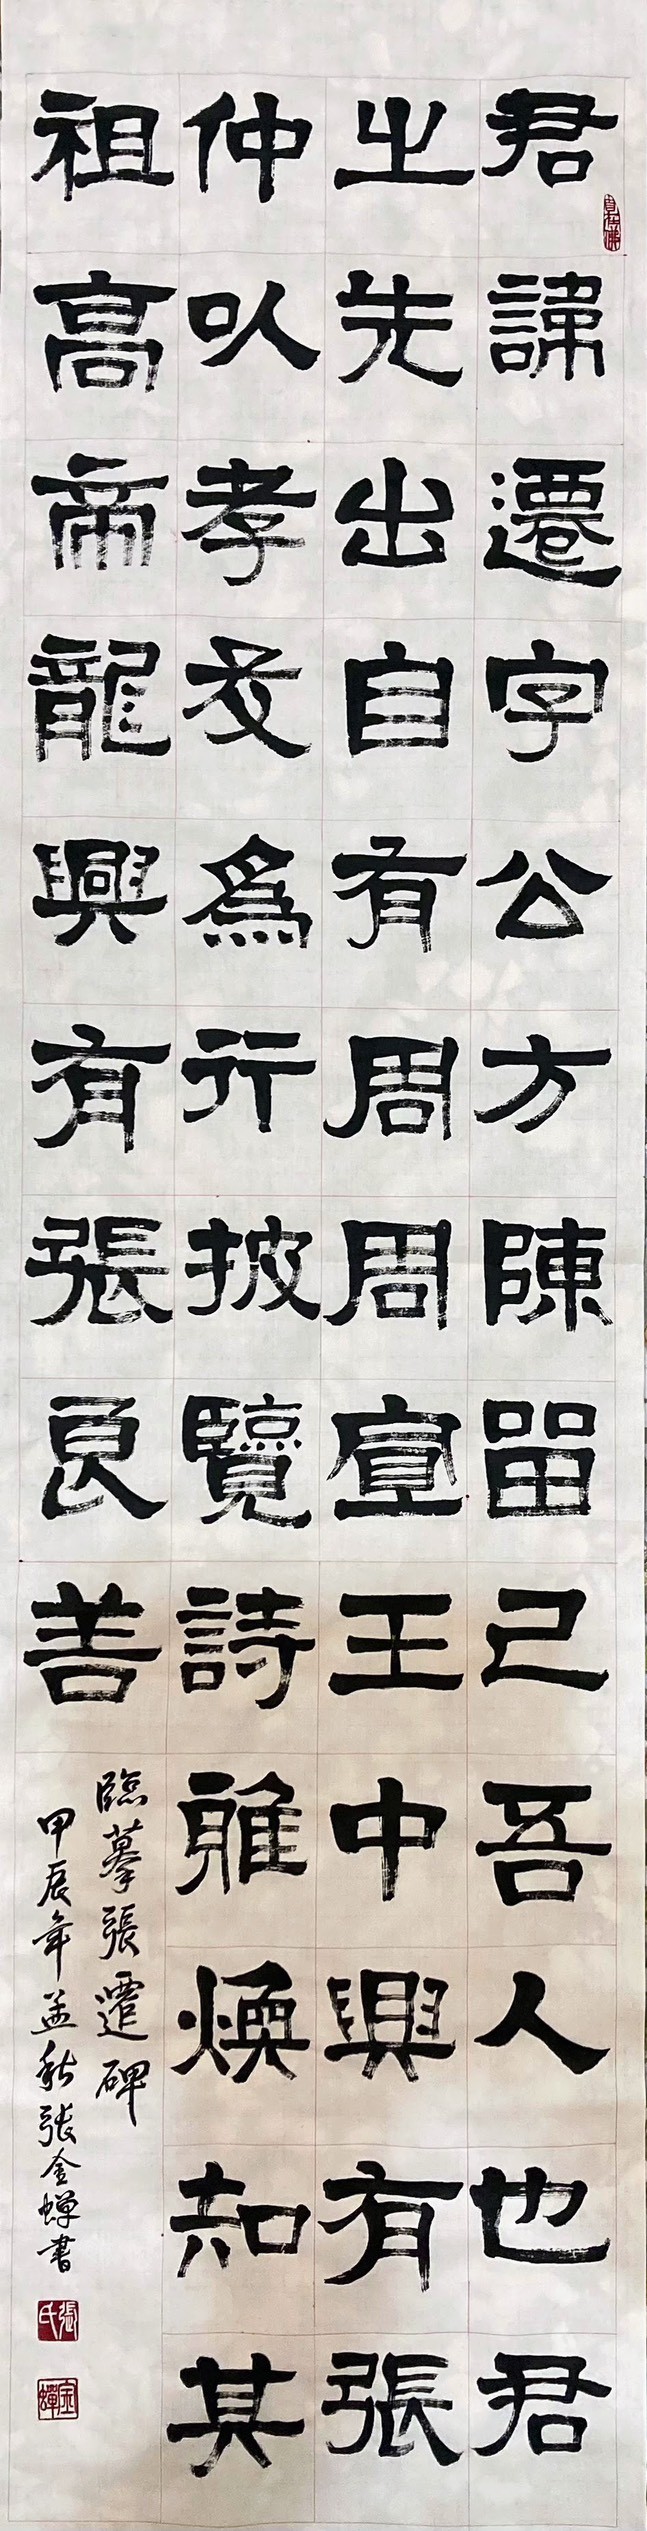 君諱遷字公方陳留己吾人也君
之先出自有周周宣王中興有張
仲以孝友為行披覽詩雅煥知其
祖高帝龍興有張良善
臨摹張遷碑
甲辰年孟秋張金蟬書
張氏
金蟬